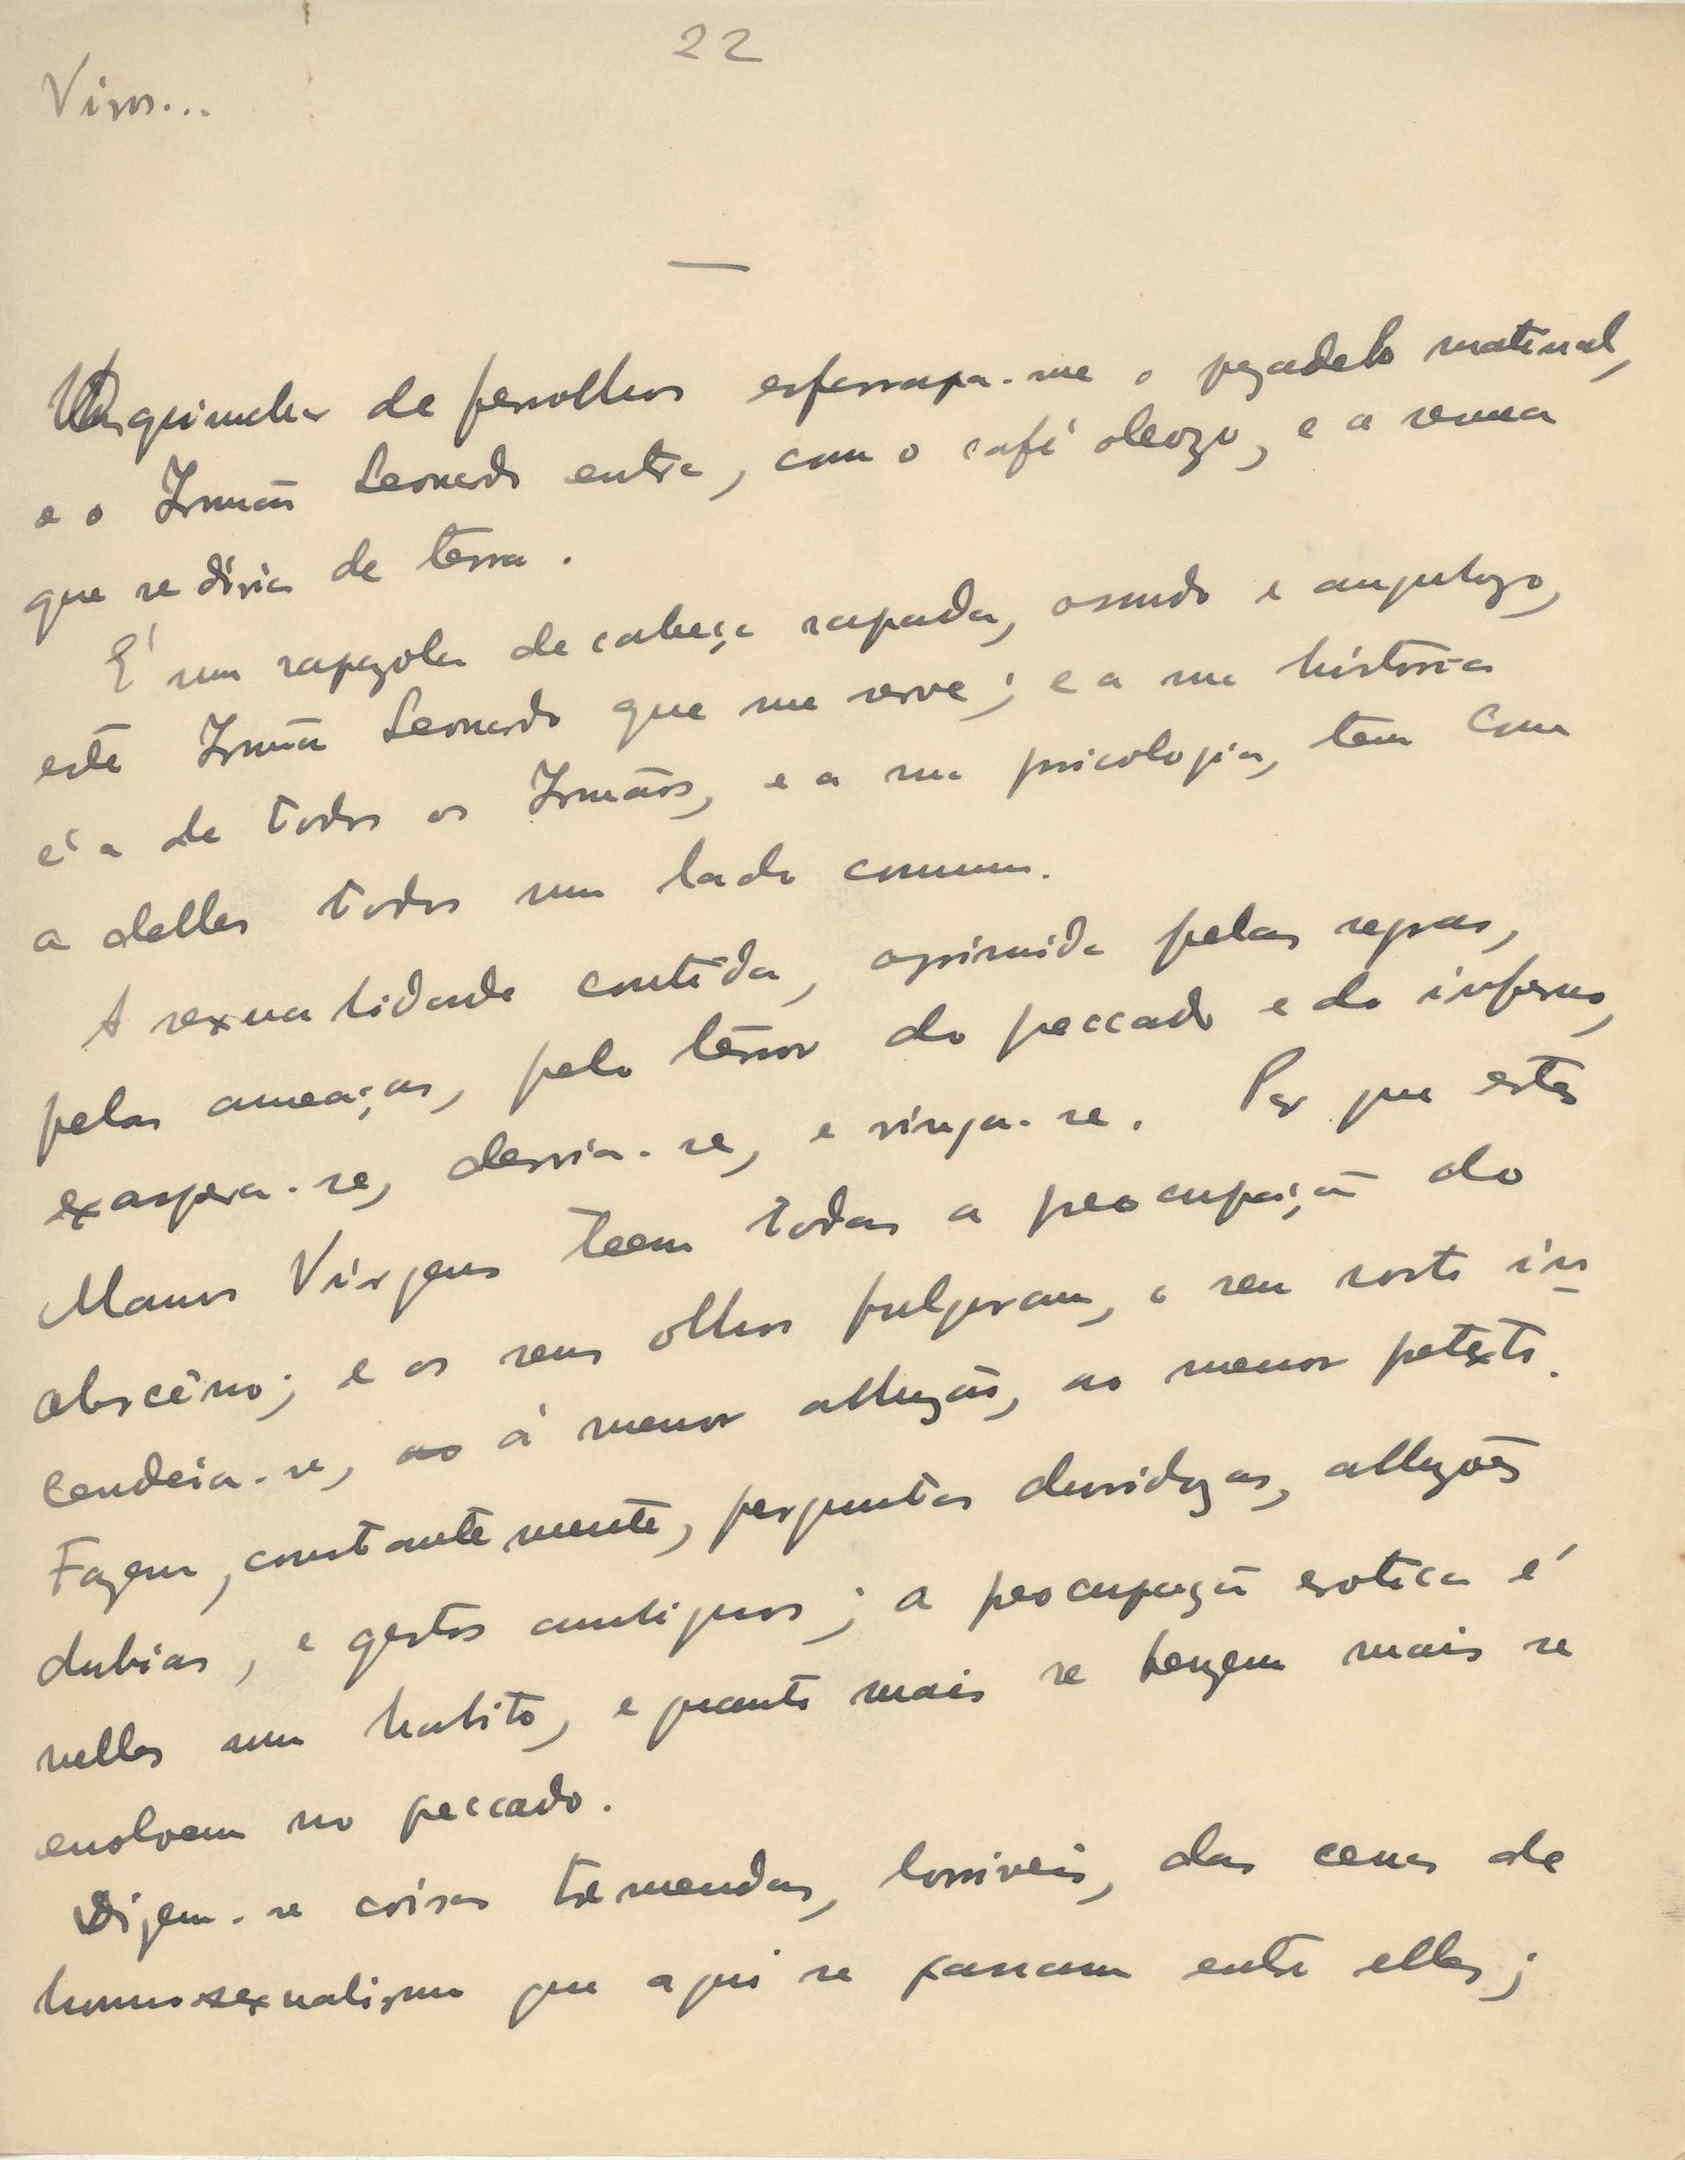 22
Vivos...
guincho de ferrolhos esfarrapa-me o pezadelo matinal,
e o Irmão Leonardo entra, com o café oleozo, e a sêmea
que se diria de terra.
É um rapazola de cabeça rapada, ossudo e angulozo,
este Irmão Leonardo que me serve; e a sua historia
é a de todos os Irmãos, e a sua psicologia, tem com
a delles todos um lado comum.
A sexualidade contida, oprimida pelas regras,
pelas ameaças, pelo terror do peccado e do inferno,
exaspera-se, desvia-se, e vinga-se. Por que estes
Manos Virgens teem todos a preocupação do
obscêno; e os seus olhos fulguram, o seu rosto in-
cendeia-se, ao á menor alluzão, ao menor pretexto.
Fazem, constantemente, perguntas duvidozas, alluzões
dubias, e gestos ambiguos; a preocupação erotica é
nelles um habito, e quanto mais se benzem mais se
envolvem no peccado.
Dizem-se coisas tremendas, horriveis, das cenas de
homosexualismo que aqui se passam entre elles;